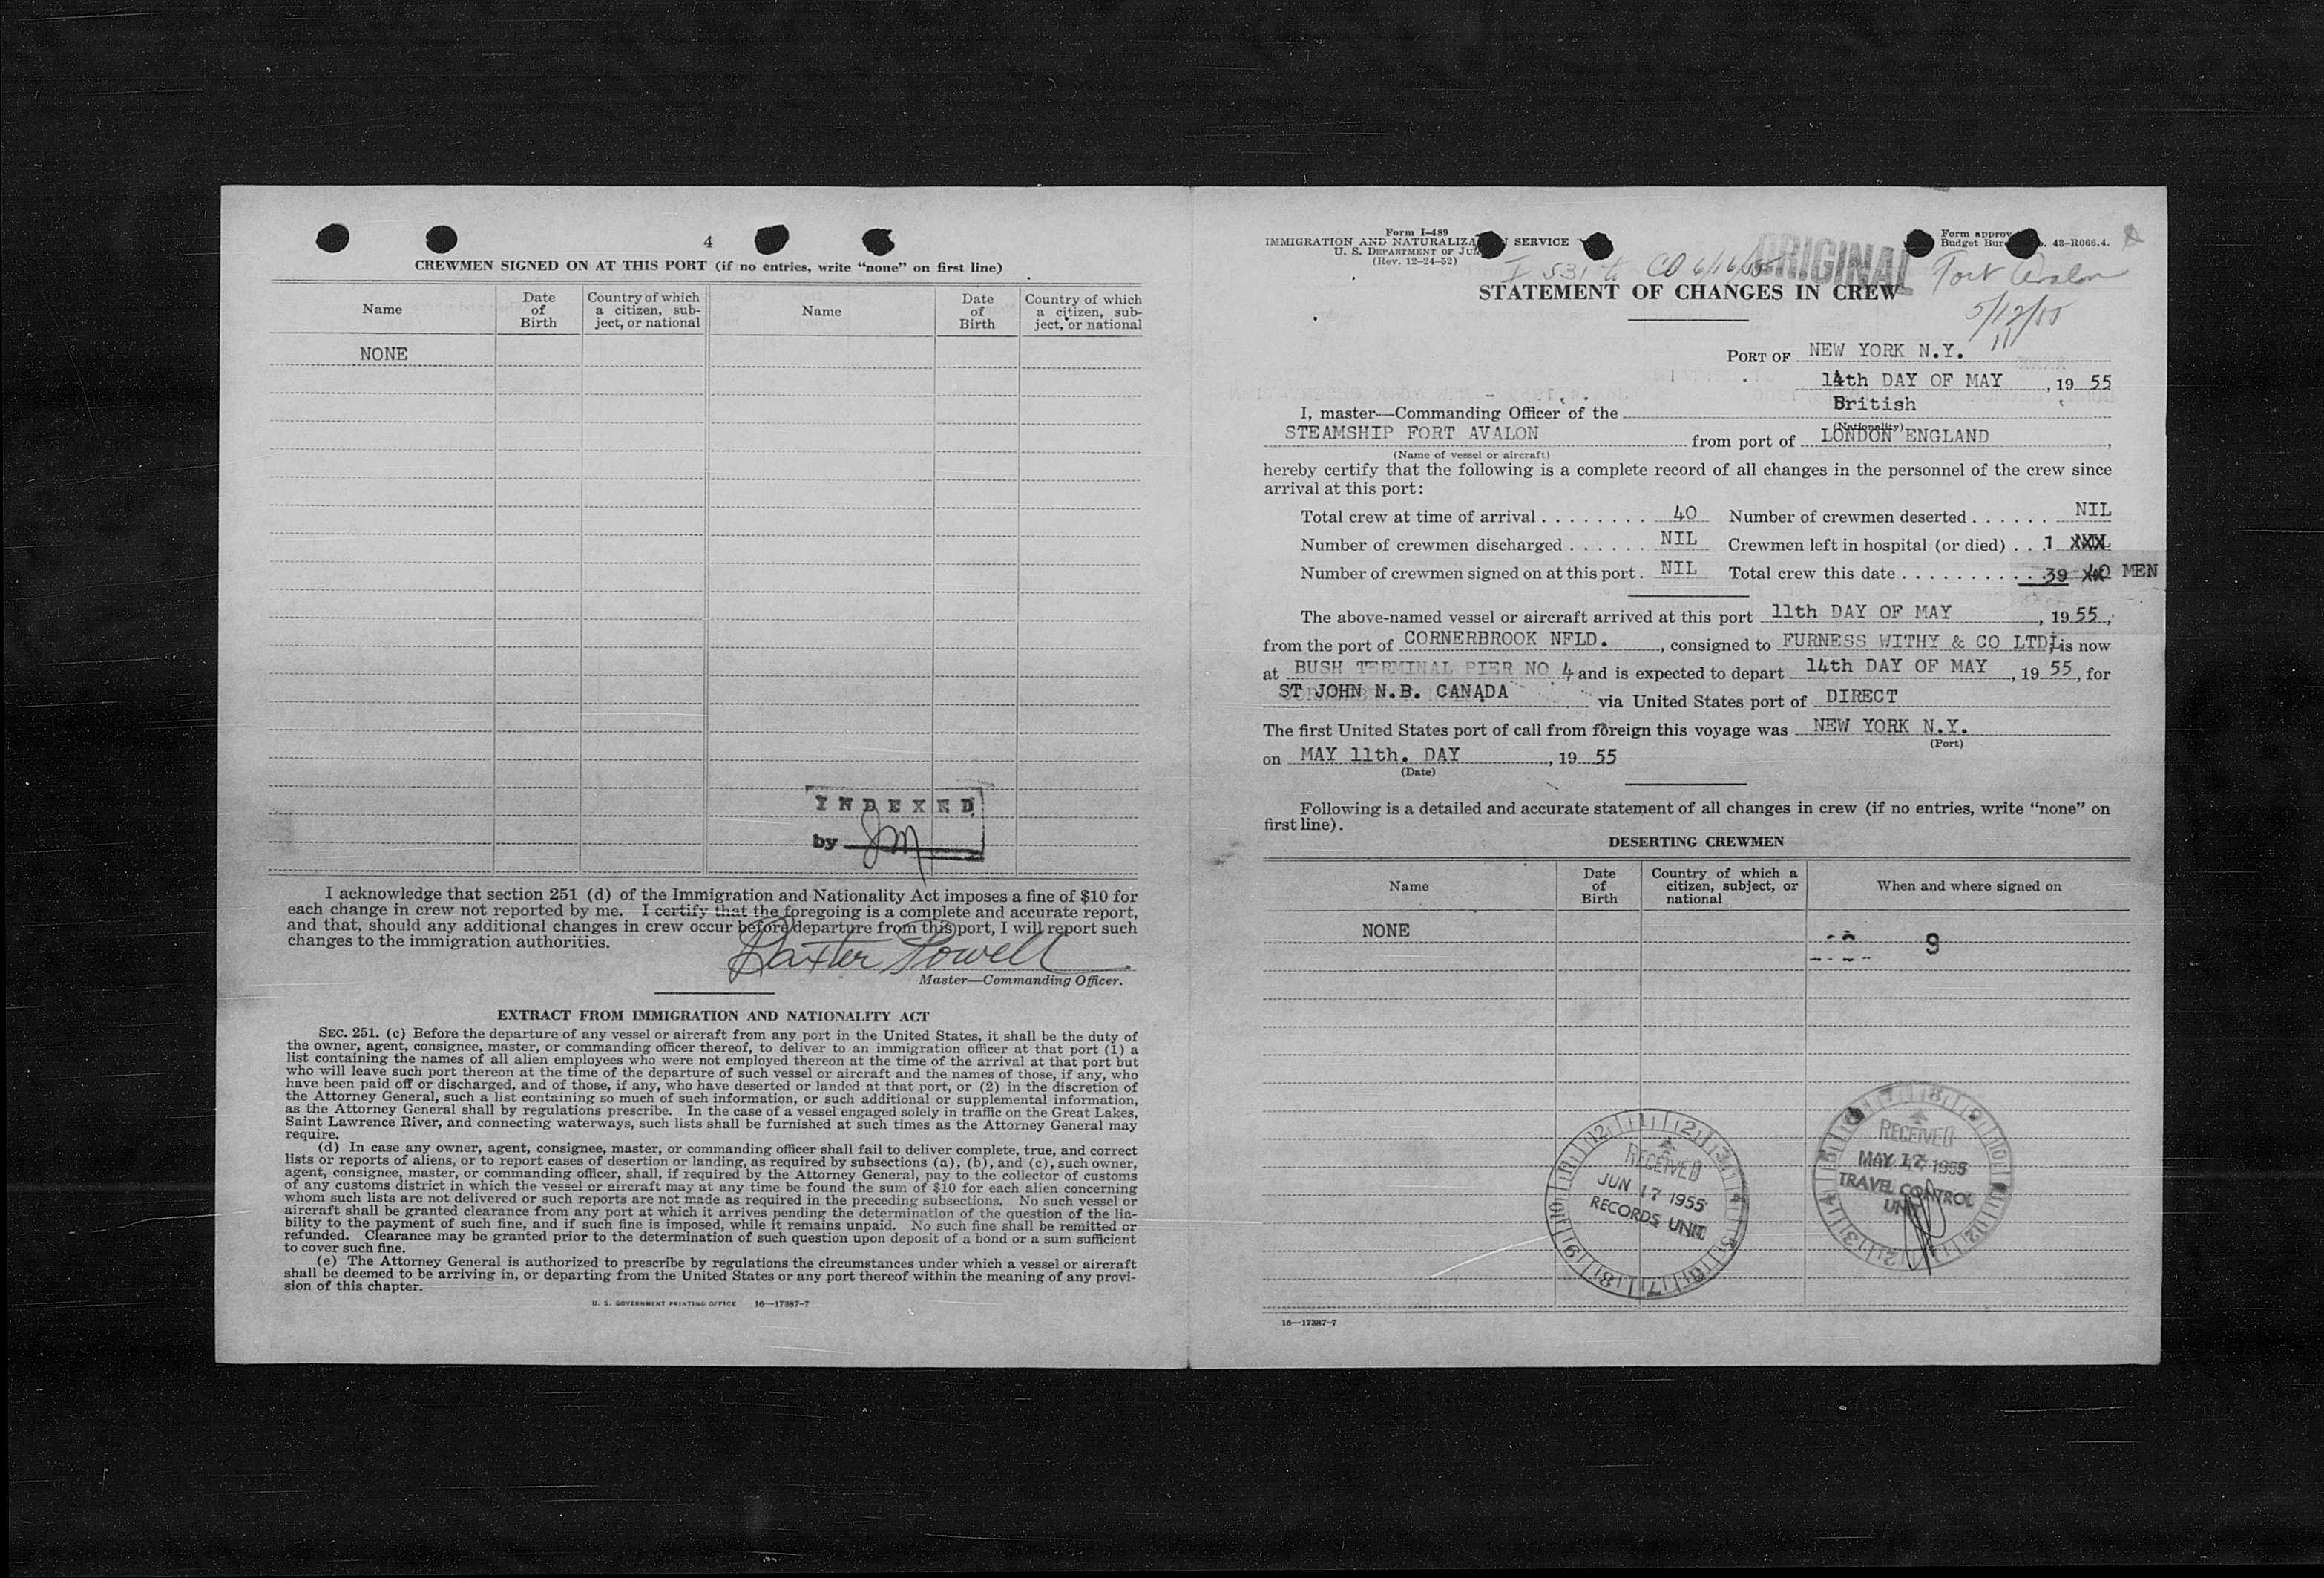 4
CREWMEN SIGNED ON AT THIS PORT (if no entries, write “none” on first line)
Name Date of Birth Country of which a citizen, sub-ject, or national Name Date of Birth Country of which a citizen, sub-ject, or national
NONE
INDEXED
by JM
I acknowledge that section 251 (d) of the Immigration and Nationality Act imposes a fine of $10 for
each change in crew not reported by me. I certify that the foregoing is a complete and accurate report,
and that, should any additional changes in crew occur before departure from this port, I will report such
changes to the immigration authorities.
Baxter Powell
Master—Commanding Officer.
EXTRACT FROM IMMIGRATION AND NATIONALITY ACT
SEC. 251. (c) Before the departure of any vessel or aircraft from any port in the United States, it shall be the duty of
the owner, agent, consignee, master, or commanding officer thereof, to deliver to an immigration officer at that port (1) a
list containing the names of all alien employees who were not employed thereon at the time of the arrival at that port but
who will leave such port thereon at the time of the departure of such vessel or aircraft and the names of those, if any, who
have been paid off or discharged, and of those, if any, who have deserted or landed at that port, or (2) in the discretion of
the Attorney General, such a list containing so much of such information, or such additional or supplemental information,
as the Attorney General shall by regulations prescribe. In the case of a vessel engaged solely in traffic on the Great Lakes,
Saint Lawrence River, and connecting waterways, such lists shall be furnished at such times as the Attorney General may
require.
(d) In case any owner, agent, consignee, master, or commanding officer shall fail to deliver complete, true, and correct
lists or reports of aliens, or to report cases of desertion or landing, as required by subsections (a), (b), and (c), such owner,
agent, consignee, master, or commanding officer, shall, if required by the Attorney General, pay to the collector of customs
of any customs district in which the vessel or aircraft may at any time be found the sum of $10 for each alien concerning
whom such lists are not delivered or such reports are not made as required in the preceding subsections. No such vessel or
aircraft shall be granted clearance from any port at which it arrives pending the determination of the question of the lia-
bility to the payment of such fine, and if such fine is imposed, while it remains unpaid. No such fine shall be remitted or
refunded. Clearance may be granted prior to the determination of such question upon deposit of a bond or a sum sufficient
to cover such fine.
(e) The Attorney General is authorized to prescribe by regulations the circumstances under which a vessel or aircraft
shall be deemed to be arriving in, or departing from the United States or any port thereof within the meaning of any provi-
sion of this chapter.
U. S. GOVERNMENT PRINTING OFFICE 16—17387-7
Form I-489
IMMIGRATION AND NATURALIZA SERVICE
U. S. DEPARTMENT OF JU
(Rev. 12-24-52)
Form approv
Budget Bure . 43-R066.4.
I 531 CO 6/16/55
ORIGINAL
Fort Avalon
5/12/55
STATEMENT OF CHANGES IN CREW
PORT OF NEW YORK N.Y.
14th DAY OF MAY , 19 55
I, master—Commanding Officer of the British
(Nationality)
STEAMSHIP FORT AVALON from port of LONDON ENGLAND ,
(Name of vessel or aircraft)
hereby certify that the following is a complete record of all changes in the personnel of the crew since
arrival at this port:
Total crew at time of arrival . . . . . . . . 40 Number of crewmen deserted . . . . . . NIL
Number of crewmen discharged . . . . . . NIL Crewmen left in hospital (or died) . . . 1 XXX
Number of crewmen signed on at this port . NIL Total crew this date . . . . . . . . . . . 39 XX 40 MEN
The above-named vessel or aircraft arrived at this port 11th DAY OF MAY , 19 55 ,
from the port of CORNERBROOK NFLD. , consigned to FURNESS WITHY & CO LTD; is now
at BUSH TERMINAL PIER NO 4 and is expected to depart 14th DAY OF MAY , 19 55 , for
ST JOHN N.B. CANADA via United States port of DIRECT
The first United States port of call from foreign this voyage was NEW YORK N.Y.
(Port)
on MAY 11th. DAY , 19 55
(Date)
Following is a detailed and accurate statement of all changes in crew (if no entries, write “none” on
first line).
DESERTING CREWMEN
Name Date of Birth Country of which a citizen, subject, or national When and where signed on
NONE 9
RECEIVED
JUN 17 1955
RECORDS UNIT
RECEIVED
MAY 17 1955
TRAVEL CONTROL
UNIT
16—17387-7